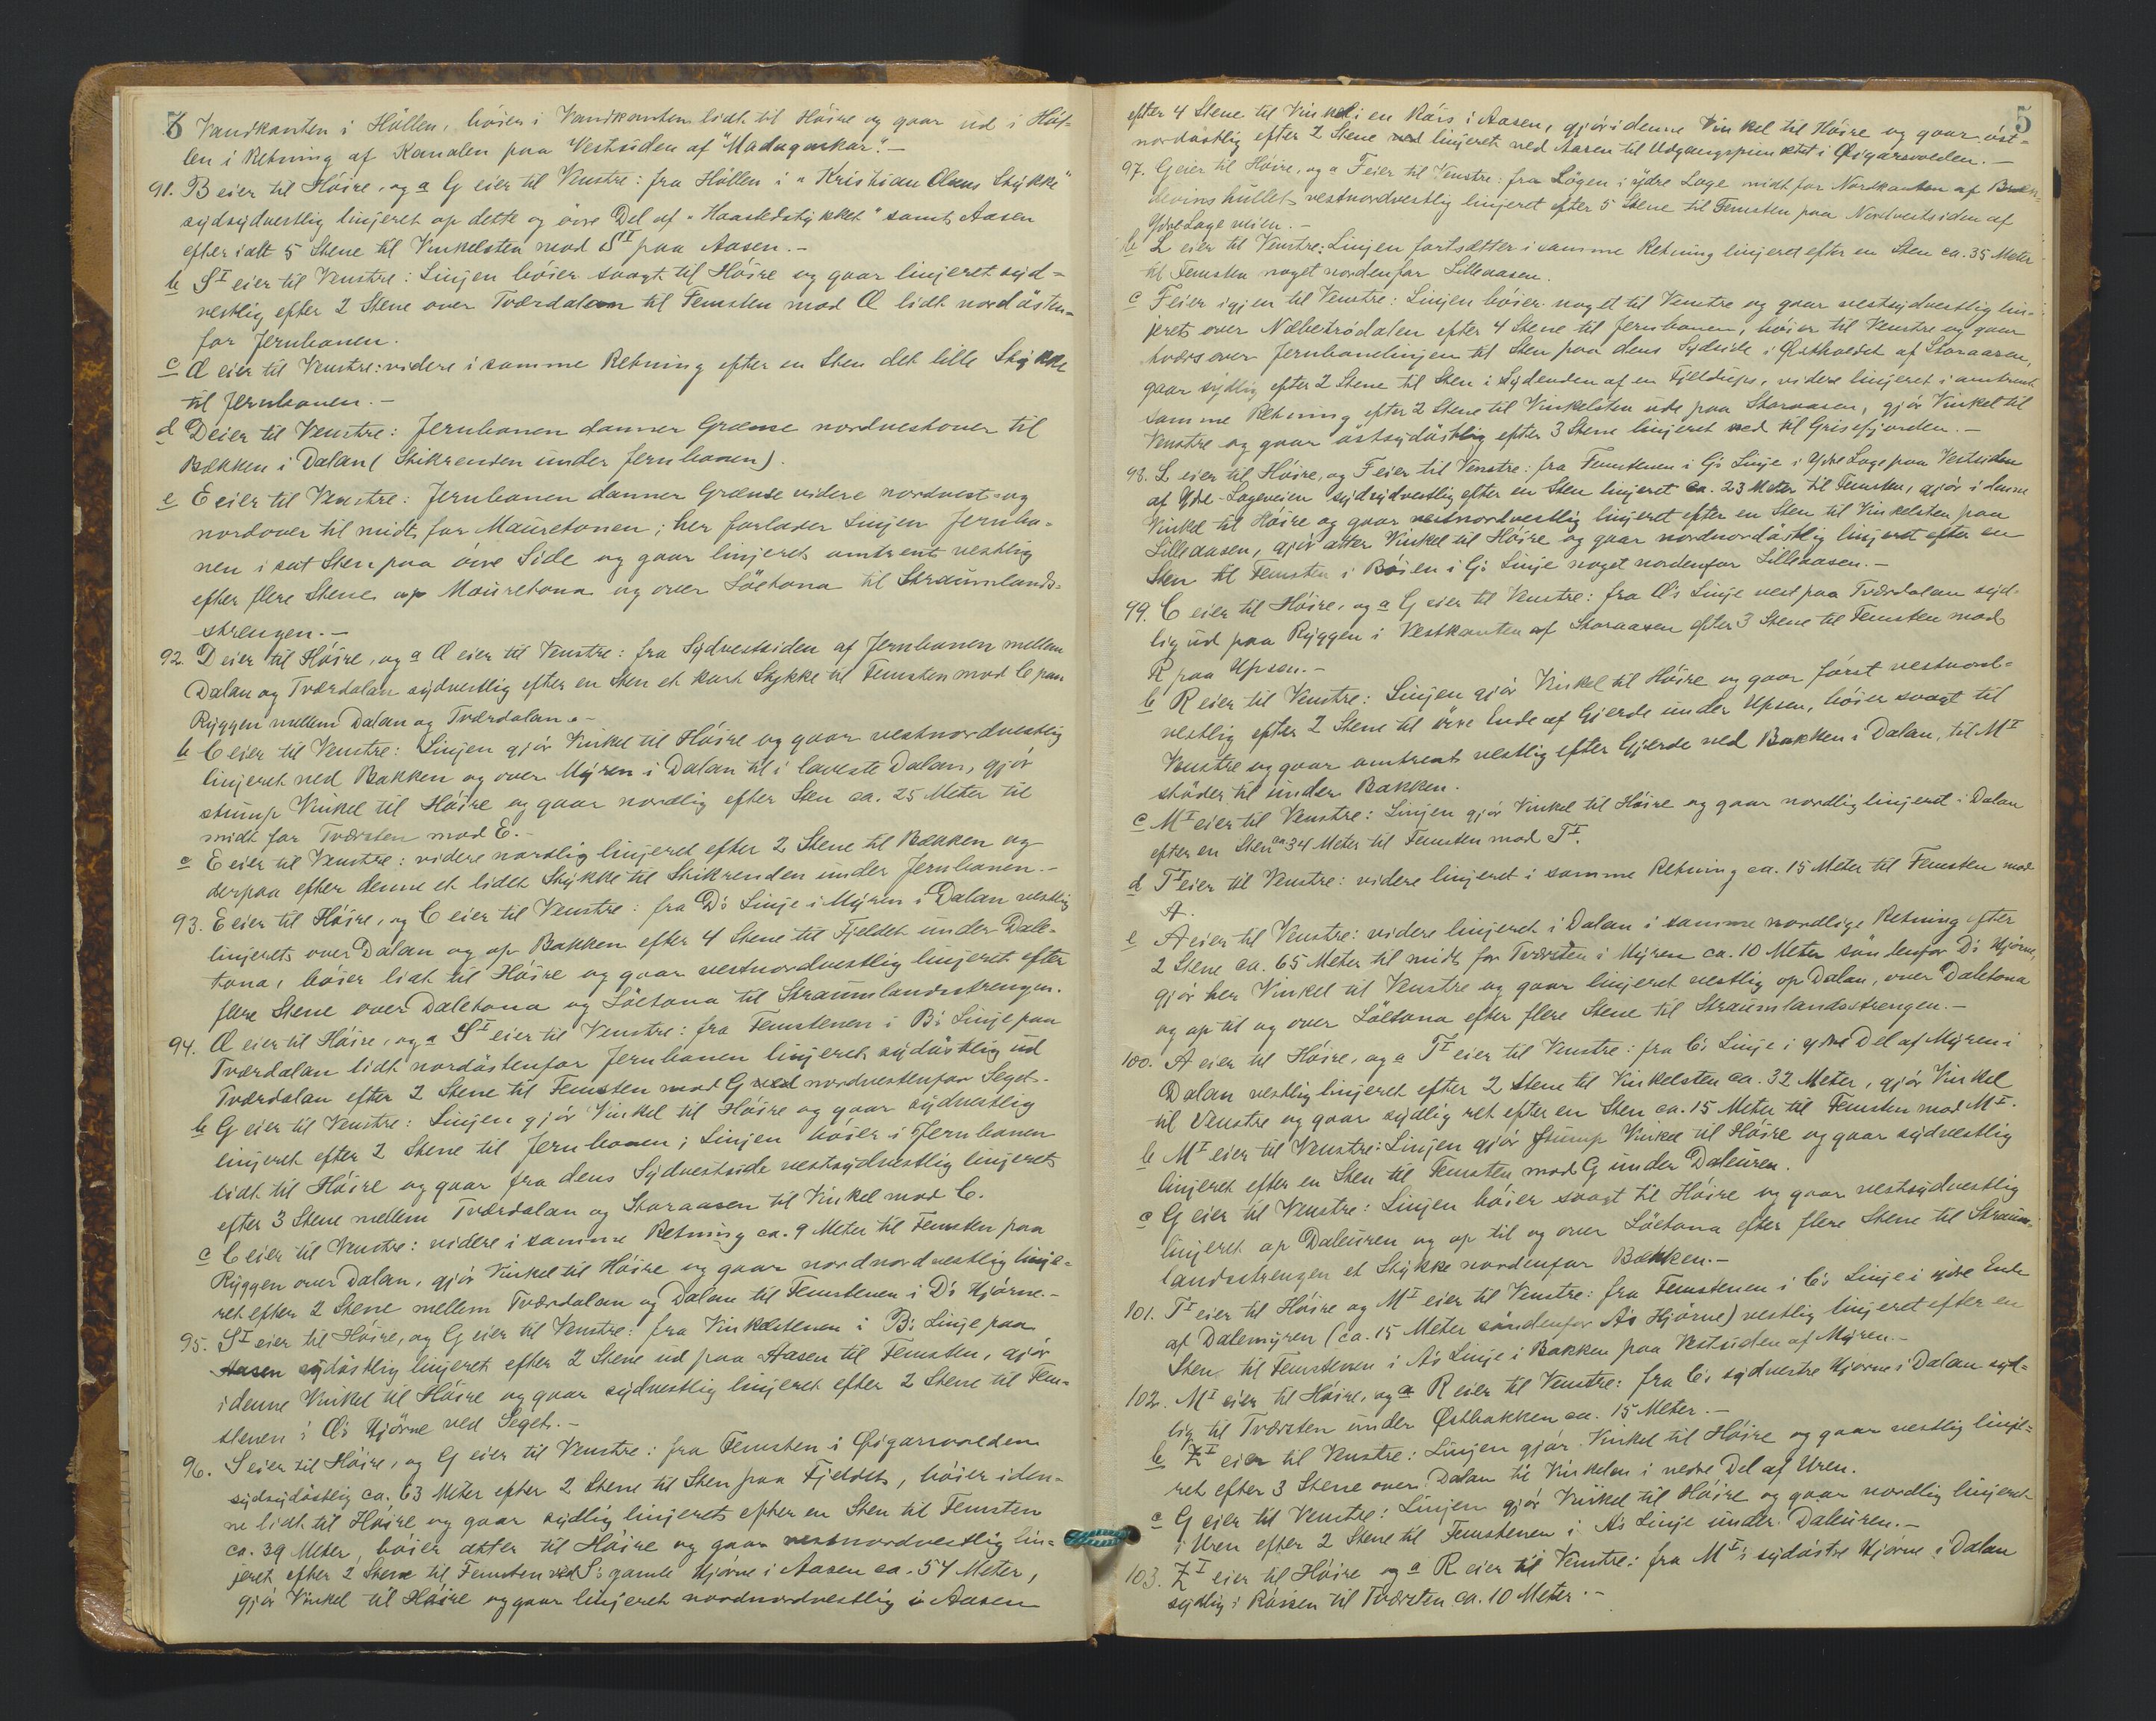 5
Vandkanten i Höllen, böier i Vandkanten lidt til Höire og gaar ud i Höl-
len i Retning af Kanalen paa Vestsiden af "Madagaskar".-
91. B eier til Höire, og a G eier til Venstre: fra Höllen i "Kristian Olsens Stykke"
sydsydvestlig linjeret op dette og övre Del af "Haastedstykket" samt Aasen
efter ialt 5 Stene til Vinkelsten mod S^I paa Aasen.-
b S^I eier til Venstre: Linjen böier svagt til Höire og gaar linjeret syd-
vestlig efter 2 Stene over Tværdalen til Femsten mod Æ lidt nordösten-
for Jernbanen.
c Æ eier til Venstre: videre i samme Retning efter en Sten det lille Stykke
til Jernbanen.-
d D eier til Venstre: Jernbanen danner Grænse nordvestover til
Bækken i Dalan (Stikrenden under Jernbanen).
e E eier til Venstre: Jernbanen danner Grænse videre nordvest- og
nordover til midt for Mauretonen; her forlader Linjen Jernba-
nen i sat Sten paa övre Side og gaar linjeret omtrent vestlig
efter flere Stene op Mauretona og over Löetona til Straumlands-
strengen.-
92. D eier til Höire, og a Æ eier til Venstre: fra Sydvestsiden af Jernbanen mellem
Dalan og Tværdalan sydvestlig efter en Sten et kort Stykke til Femsten mod C paa
Ryggen mellem Dalan og Tværdalan.-
b C eier til Venstre: Linjen gjör Vinkel til Höire og gaar vestnordvestlig
linjeret ned Bakken og over Myren i Dalan til i laveste Dalan, gjör
stump Vinkel til Höire og gaar nordlig efter Sten ca. 25 Meter til
midt for Tværsten mod E.-
c E eier til Venstre: videre nordlig linjeret efter 2 Stene til Bækken og
derpaa efter denne et lidet Stykke til Stikrenden under Jernbanen.-
93. E eier til Höire, og C eier til Venstre: fra D's Linje i Myren i Dalan vestlig
linjeret over Dalan og op Bakken efter 4 Stene til Fjeldet under Dale-
tona, böier lidt til Höire og gaar vestnordvestlig linjeret efter
flere Stene over Daletona og Löetona til Straumlandsstrengen.
94. Æ eier til Höire, og a S^I eier til Venstre: fra Femstenen i B's Linje paa
Tværdalan lidt nordöstenfor Jernbanen linjeret sydöstlig ud
Tværdalan efter 2 Stene til Femsten mod G ved nordvestenfor Seget.-
b G eier til Venstre: Linjen gjör Vinkel til Höire og gaar sydvestlig
linjeret efter 2 Stene til Jernbanen; Linjen böier i Jernbanen
lidt til Höire og gaar fra dens Sydvestside vestsydvestlig linjeret
efter 3 Stene mellem Tværdalan og Storaasen til Vinkel mod C.
c C eier til Venstre: videre i samme Retning ca. 9 Meter til Femsten paa
Ryggen over Dalan, gjör Vinkel til Höire og gaar nordnordvestlig linje-
ret efter 2 Stene mellem Tværdalan og Dalan til Femstenen i D's Hjörne.-
95. S^I eier til Höire, og G eier til Venstre: fra Vinkelstenen i B's Linje paa
Aasen sydöstlig linjeret efter 2 Stene ud paa Aasen til Femsten, gjör
i denne Vinkel til Höire og gaar sydvestlig linjeret efter 2 Stene til Fem-
stenen i Æ's Hjörne ved Seget.-
96. S eier til Höire, og G eier til Venstre: fra Femsten i Øigarsvolden
sydsydöstlig ca. 63 Meter efter 2 Stene til Sten paa Fjeldet, böier i den-
ne lidt til Höire og gaar sydlig linjeret efter en Sten til Femsten
ca. 39 Meter, böier atter til Höire og gaar vestnordvestlig lin-
jeret efter 2 Stene til Femsten ved S's gamle Hjörne i Aasen ca. 54 Meter,
gjör Vinkel til Höire og gaar linjeret nordnordvestlig i Aasen
5
efter 4 Stene til Vinkel i en Kårs i Aasen, gjör i denne Vinkel til Höire og gaar öst-
nordöstlig efter 2 Stene ved linjeret ned Aasen til Udgangspunktet i Øigarsvolden.-
97. G eier til Höire, og a F eier til Venstre: fra Lögen i ydre Lage midt for Nordkanten af
hullet vestnordvestlig linjeret efter 5 Stene til Femsten paa Nordvestsiden af
Ydre Lage veien.-
b L eier til Venstre: Linjen fortsætter i samme Retning linjeret efter en Sten ca. 35 Meter
til Femsten noget nordenfor Lilleaasen.
c F eier igjen til Venstre: Linjen böier noget til Venstre og gaar vestsydvestlig lin-
jeret over Næbetrödalen efter 4 Stene til Jernbanen, böier til Venstre og gaar
tværs over Jernbanelinjen til Sten paa dens Sydside i Østholdet af Storaasen,
gaar sydlig efter 2 Stene til Sten i Sydenden af en Fjeldups, videre linjeret i omtrent
samme Retning efter 2 Stene til Vinkelsten ude paa Storaasen, gjör Vinkel til
Venstre og gaar östsydöstlig efter 3 Stene linjeret ned til Grisefjorden.-
98. L eier til Höire, og F eier til Venstre: fra Femstenen i G's Linje i Ydre Lage paa Vestsiden
af Ydre-Lageveien sydsydvestlig efter en Sten linjeret ca. 23 Meter til Femsten, gjör i denne
Vinkel til Höire og gaar vestnordvestlig linjeret efter en Sten til Vinkelsten paa
Lilleaasen, gjör atter Vinkel til Höire og gaar nordnordöstlig linjeret efter en
Sten til Femsten i Böien i G's Linje noget nordenfor Lilleaasen.-
99. C eier til Höire, og a G eier til Venstre: fra Æ's Linje vest paa Tværdalan syd-
lig ud paa Ryggen i Vestkanten af Storaasen efter 3 Stene til Femsten mod
R paa Upsen.-
b R eier til Venstre: Linjen gjör Vinkel til Höire og gaar först vestnord-
vestlig efter 2 Stene til övre Ende af Gjerde under Upsen, böier svagt til
Venstre og gaar omtrent vestlig efter Gjerde ned Bakken i Dalan, til M^I
stöder til under Bakken.
c M^I eier til Venstre: Linjen gjör Vinkel til Höire og gaar nordlig linjeret i Dalan
efter en Sten ca 34 Meter til Femsten mod T^I.
d T^I eier til Venstre: videre linjeret i samme Retning ca. 15 Meter til Femsten mod
A.
e A eier til Venstre: videre linjeret i Dalan i samme nordlige Retning efter
2 Stene ca. 65 Meter til midt for Tværsten i Myren ca. 10 Meter söndenfor D's Hjörne,
gjör her Vinkel til Venstre og gaar linjeret vestlig op Dalan, over Daletona
og op til og over Löetona efter flere Stene til Straumlandsstrengen.-
100. A eier til Höire, og a T^I eier til Venstre: fra C's Linje i ydre Del af Myren i
Dalan vestlig linjeret efter 2 Stene til Vinkelsten ca. 32 Meter, gjör Vinkel
til Venstre og gaar sydlig ret efter en Sten ca. 15 Meter til Femsten mod M^I.
b M^I eier til Venstre: Linjen gjör stump Vinkel til Höire og gaar sydvestlig
linjeret efter en Sten til Femsten mod G under Daleuren.
c G eier til Venstre: Linjen böier svagt til Höire og gaar vestsydvestlig
linjeret op Daleuren og op til og over Löetona efter flere Stene til Straum-
landsstrengen et Stykke nordenfor Bækken.-
101. T^I eier til Höire og M^I eier til Venstre: fra Femstenen i C's Linje i ydre Ende
af Dalemyren (ca. 15 Meter söndenfor A's Hjörne) vestlig linjeret efter en
Sten til Femstenen i A's Linje i Bakken paa Vestsiden af Myren.-
102. M^I eier til Höire, og a R eier til Venstre: fra C's sydvestre Hjörne i Dalan syd-
lig til Tværsten under Østbakken ca. 15 Meter.-
b Z^I eier til Venstre: Linjen gjör Vinkel til Höire og gaar vestlig linje-
ret efter 3 Stene over Dalan til Vinkelen i nedre Del af Uren.
c G eier til Venstre: Linjen gjör Vinkel til Höire og gaar nordlig linjeret
i Uren efter 2 Stene til Femstenen i A's Linje under Daleuren.-
103. Z^I eier til Höire og a R eier til Venstre: fra M^I's sydöstre Hjörne i Dalan
sydlig i Råsen til Tværsten ca. 10 Meter.-